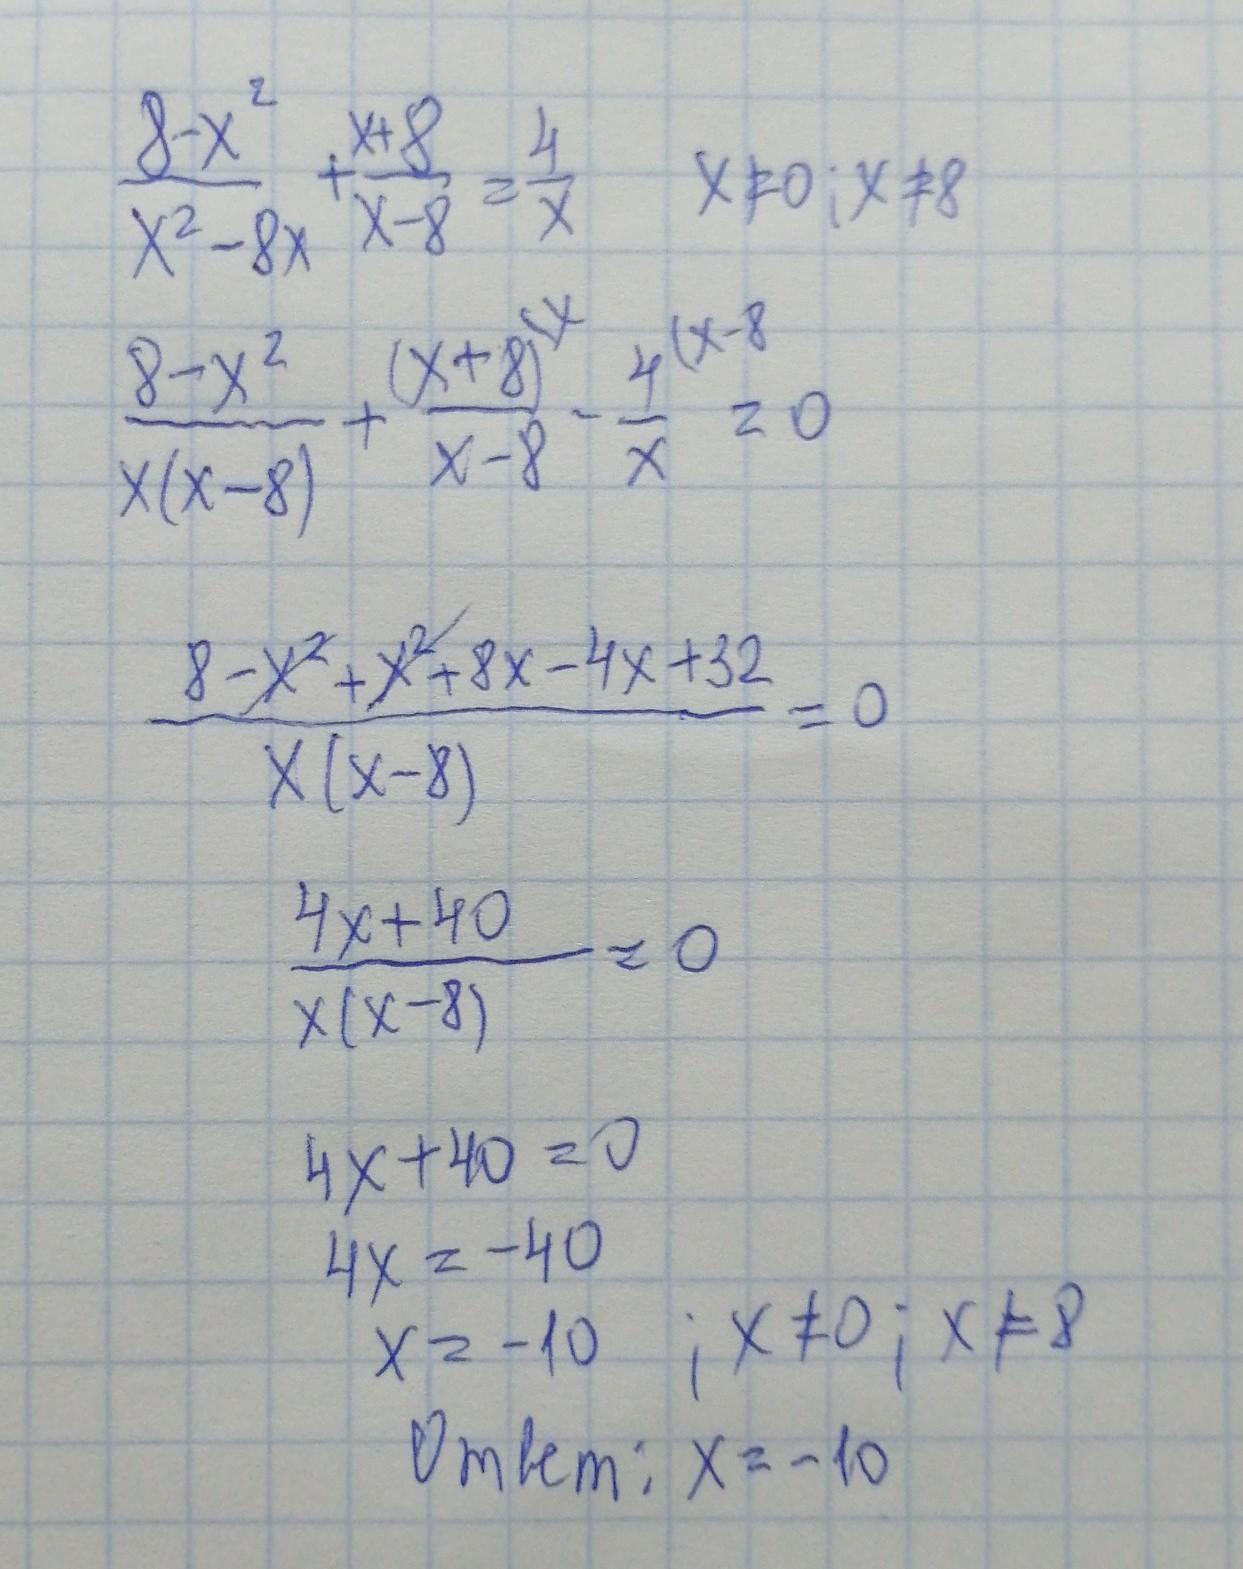 (8-x²)/(x²-8x) + (x+8)/(x-8) = 4/x x≠0; x≠8
(8-x²)/(x(x-8)) + (x+8)⁽ˣ/(x-8) - 4⁽ˣ⁻⁸/x = 0
(8-x²+x²+8x-4x+32)/(x(x-8)) = 0
(4x+40)/(x(x-8)) = 0
4x+40=0
4x=-40
x=-10 ; x≠0; x≠8
Ответ: x=-10